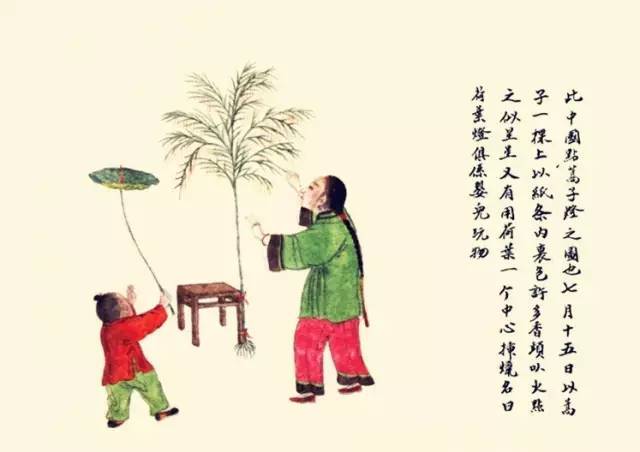 此中國點蒿子燈之圖也七月十五日以蒿
子一棵上以紙条内裹包許多香頭以火點
之似星星又有用荷葉一个中心插蠟名曰
荷葉燈俱係嬰兒玩物